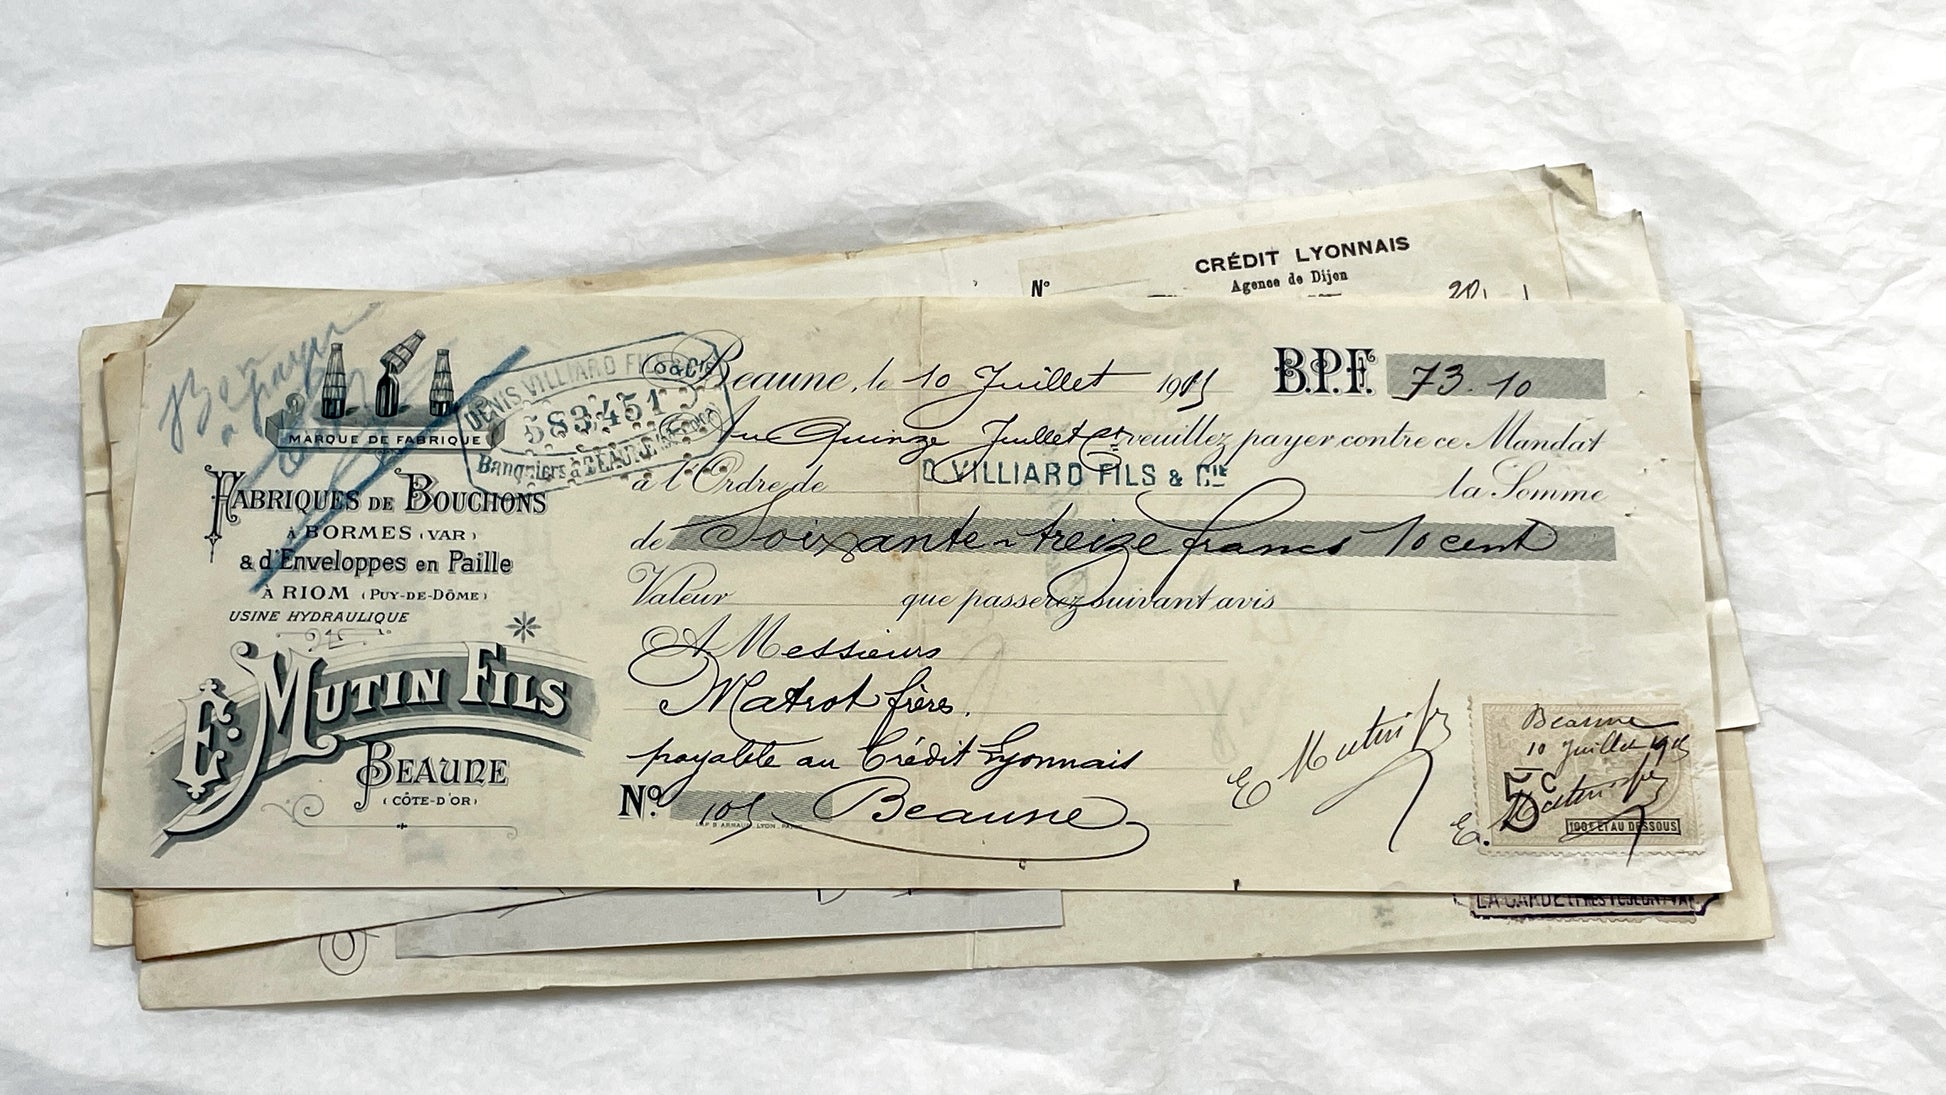 CRÉDIT LYONNAIS
Agence de Dijon
Nº
Bon à payer
MARQUE DE FABRIQUE
DENIS VILLIARD FILS & Cie
583451
Banquiers à BEAUNE (Côte-d'Or)
FABRIQUES DE BOUCHONS
À BORMES (VAR)
& d'Enveloppes en Paille
À RIOM (PUY-DE-DÔME)
USINE HYDRAULIQUE
E. MUTIN FILS
BEAUNE
(CÔTE-D'OR)
Beaune, le 10 Juillet 1905 B.P.F. 73.10
Au Quinze Juillet Ct veuillez payer contre ce Mandat
à l'Ordre de D. VILLIARD FILS & Cie la Somme
de Soixante-treize francs 10 cent
Valeur que passerez suivant avis
A Messieurs
Matrot frères.
payable au Crédit Lyonnais
Nº 105 Beaune
E Mutin fils
Beaune
10 Juillet 1905
5c
E. Mutin fils
100f ET AU DESSOUS